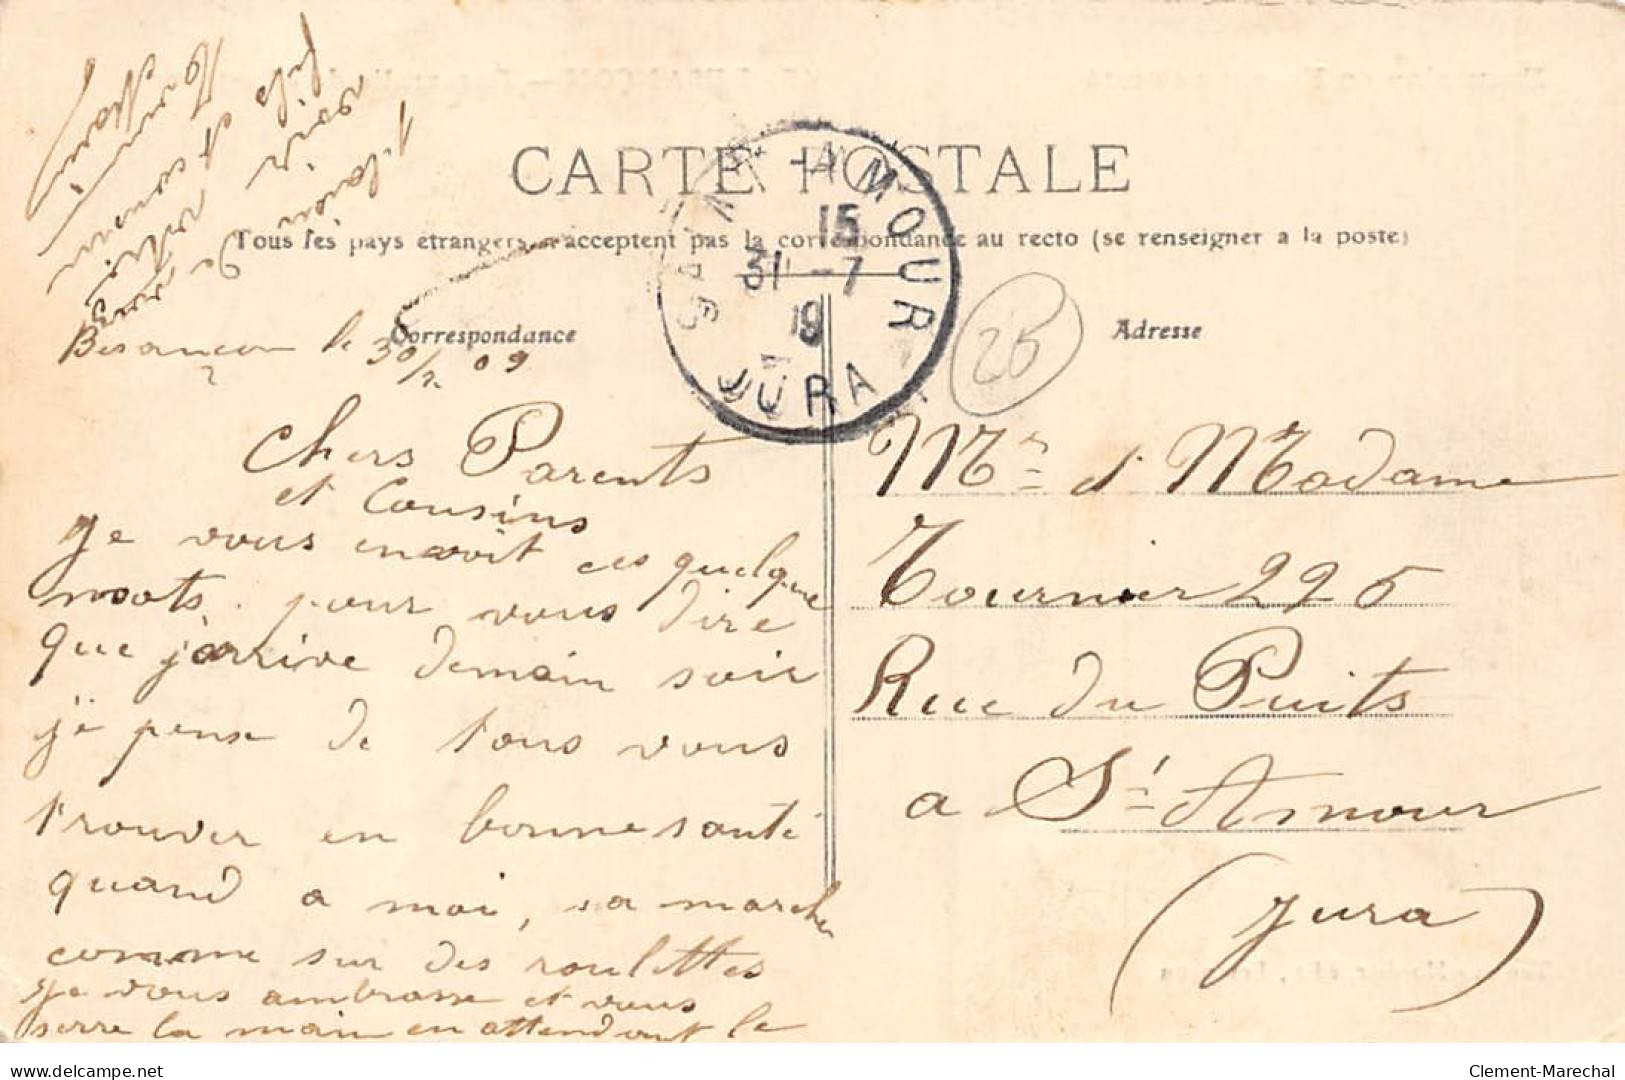 CARTE POSTALE
Tous les pays étrangers n'acceptent pas la correspondance au recto (se renseigner a la poste)
Correspondance
Adresse
SAINT-AMOUR
15
31 -7
JURA
25
Besançon le 30/7 09
Chers Parents
et Cousins
Je vous envoit ces quelque
mots. pour vous dire
que j'arrive demain soir
je pense de tous vous
trouver en bonne santé
quand a moi, sa marcher
comme sur des roulettes
Je vous ambrasse et vous
serre la main en attendant le
plaisir de vous
voir votre
fils et cousin
Mr et Madame
Tournier 225
Rue du Puits
a St Amour
(Jura)
delcampe.net
Clement-Marechal